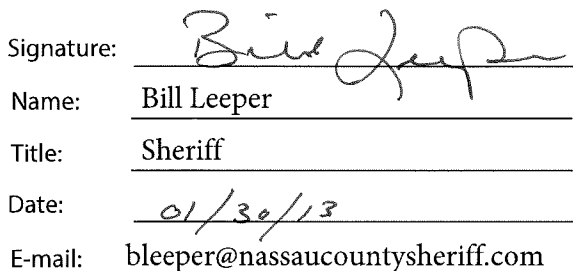 Signature: Bill Leeper
Name: Bill Leeper
Title: Sheriff
Date: 01/30/13
E-mail: bleeper@nassaucountysheriff.com